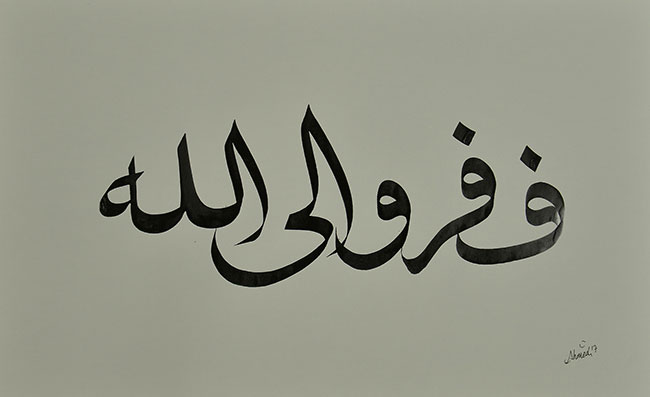 ففروا الى الله
Ahmed 17